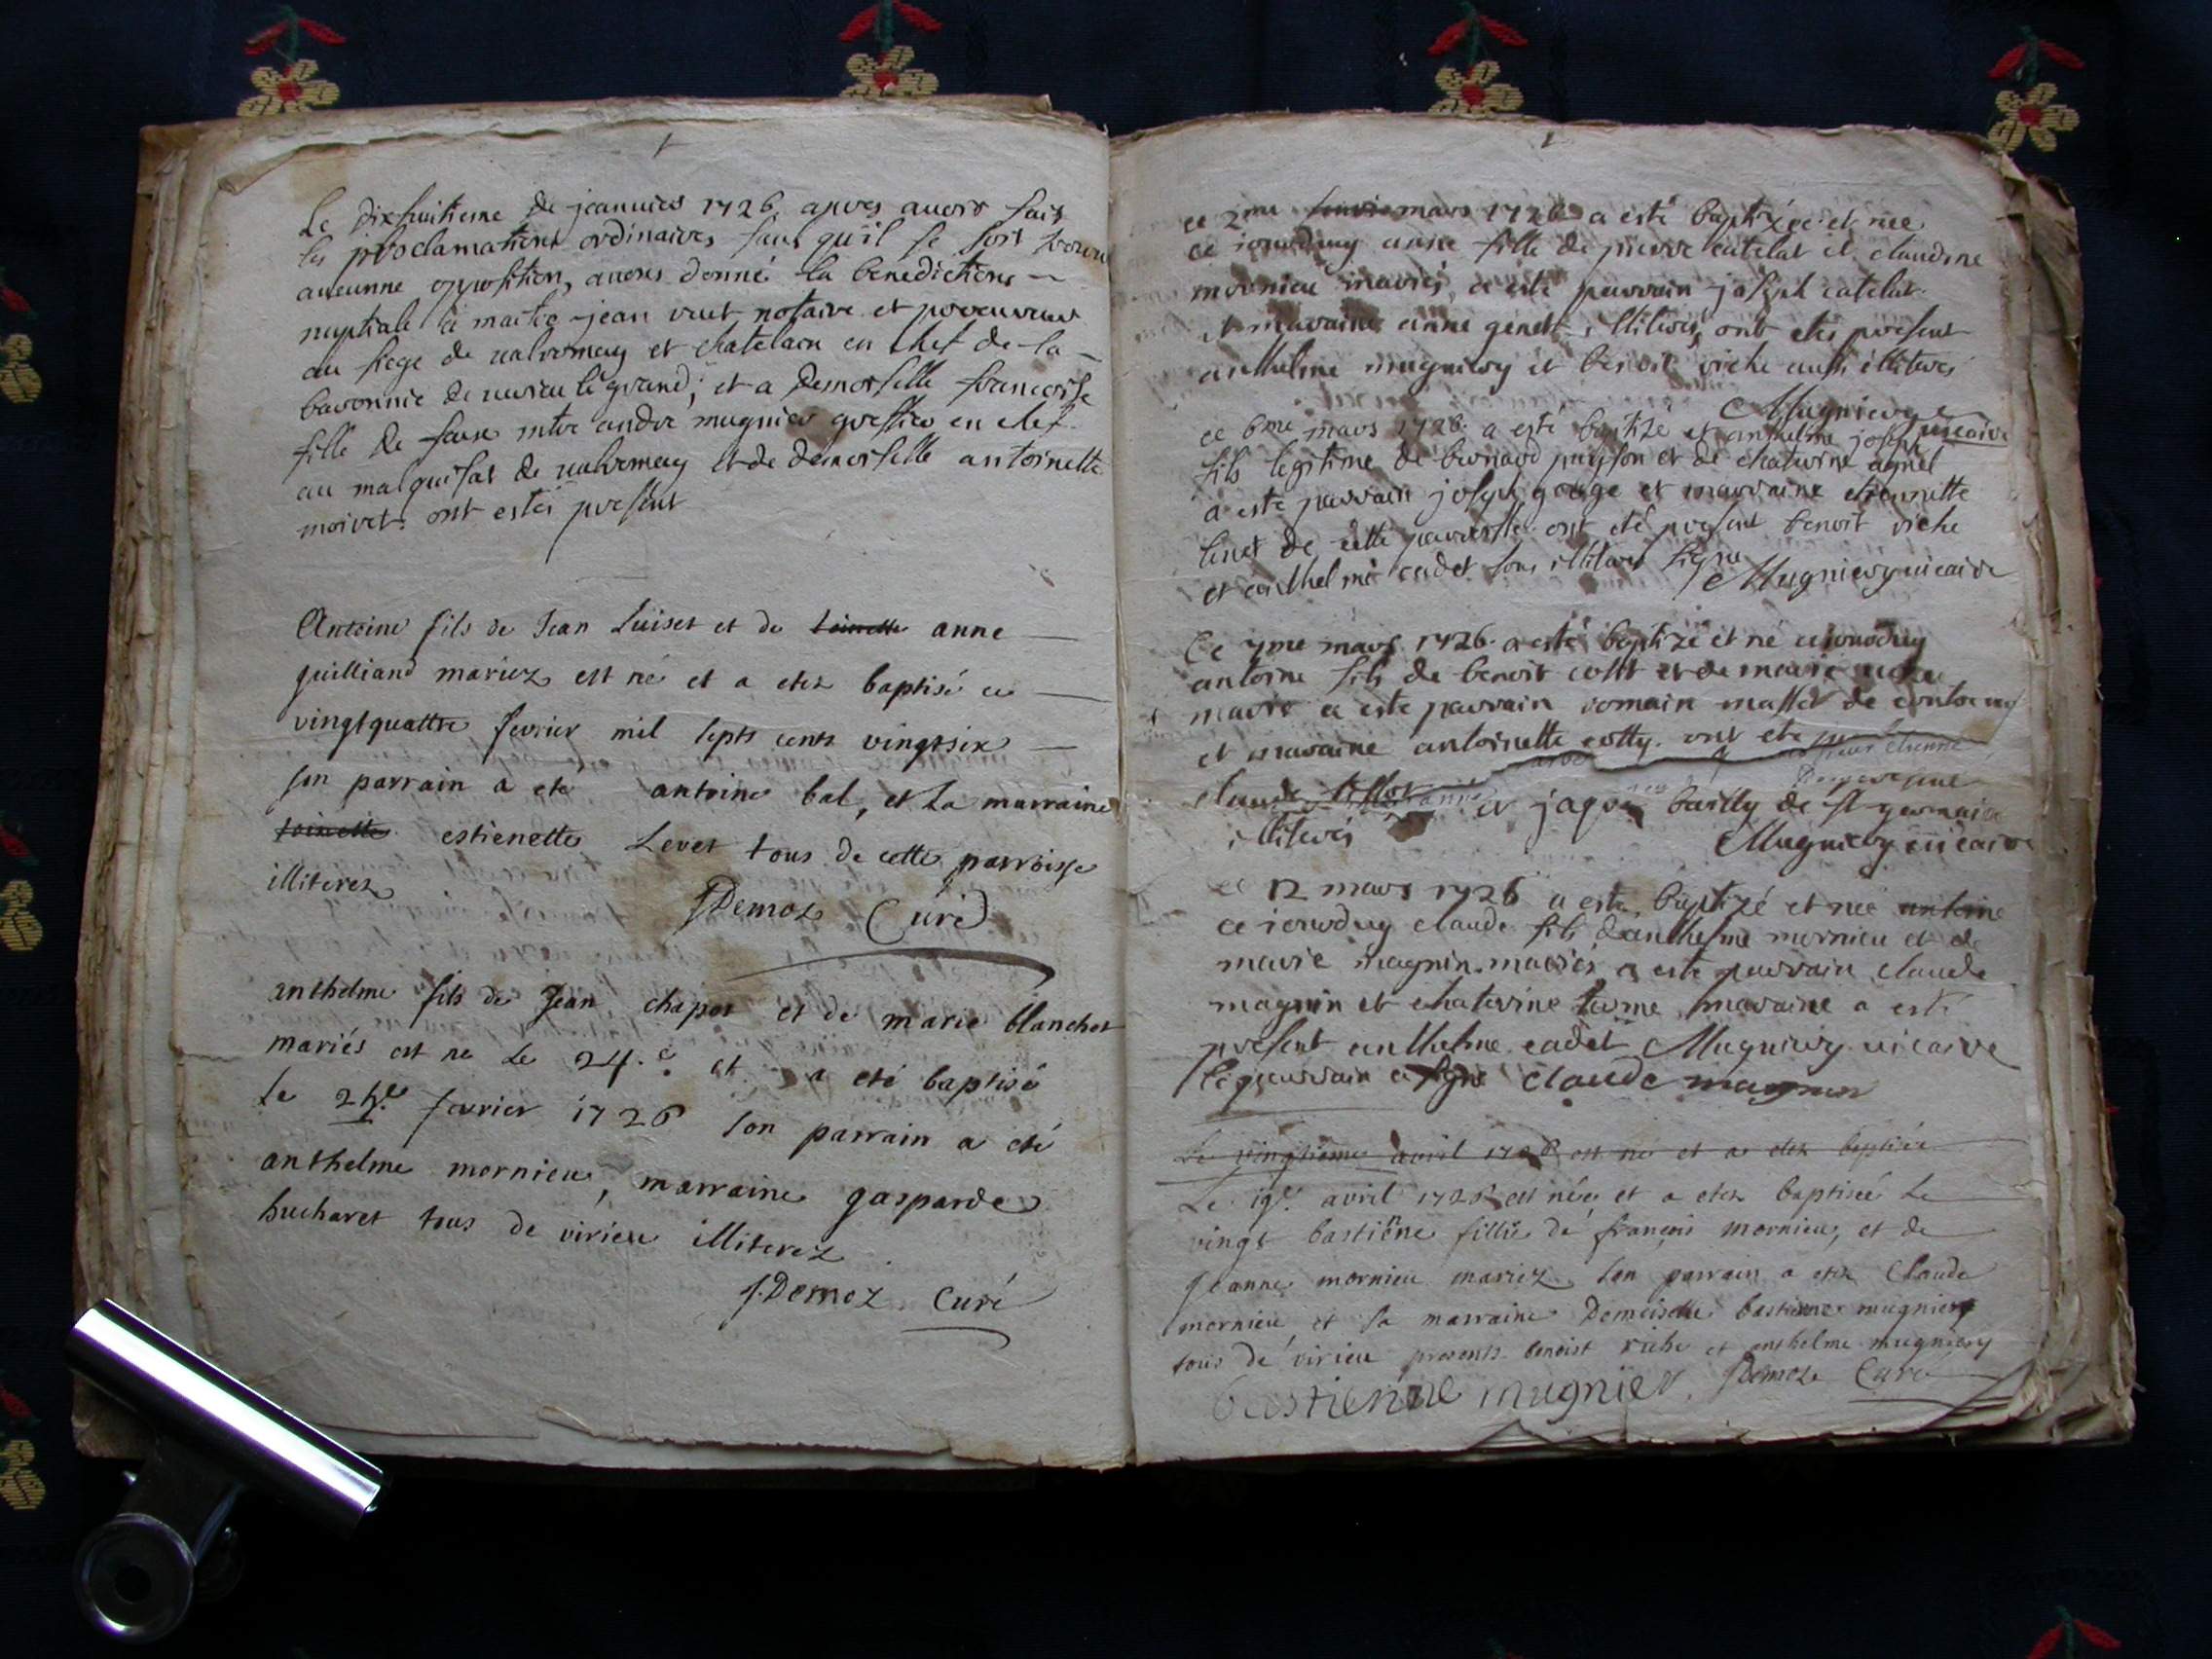 Le dixhuitieme de jeanuier 1726 apres auoir fait
les proclamations ordinaires sans qu'il se soit trouvé
aucunne opposition, auons donné la benedictions
nuptiale a maitre jean vuet notaire et procureur
au siege de ualromey et chatelain en chef de la
baronnie de uirieu le grand; et a demoiselle francoise
fille de feue mtre andre mugnier greffier en chef
au malquisat de ualromey et de demoiselle antoinette
moiret. ont estéi present
Antoine fils de Jean Luiset et de toinette anne
guilliand mariez est né et a etez baptisé ce
vingtquattre fevrier mil septs cents vingtsix
son parrain a eté antoine bal, et La marraine
toinette estienette Levet tous de cette parroisse
illiterez
JDemoz Curé
anthelme fils de Jean chapot et de marie blanchet
mariés est ne Le 24.e et a eté baptisé
le 25.e fevrier 1726 son parrain a eté
anthelme mornieu, marraine gasparde
hucharet tous de virieu illiterez
J.Demoz Curé
ce 2me mars 1726 a esté baptizéé et née
ce iourduy anne fille de pierre catelat et claudine
mornieu mariés, a esté parrain joseph catelat
et maraine anne genet illiterés, ont etés present
anthelme mugniery et benoit riche aussi illiterés
Mugniery uicaire
ce 6me mars 1726 a esté baptizé et anthelme joseph
fils legitime de bernard puyson et de chaterine agnel
a esté parrain joseph goüge et marraine etiennette
leuet de cette parroisse ont eté present benoit riche
et anthelme cadet sous illiteres signe
Mugniery uicaire
Ce 7me mars 1726 a esté baptizé et né ceiourduy
antoine fils de benoit cott et de marie
marié a esté parrain romain masset de
et maraine antoinette cotty. ont eté
claude et jaques bailly de st germain
illiterés Mugniery uicaire
ce 12 mars 1726 a esté baptizé et née antoine
ce iourduy claude fils danthelme mornieu et de
marie magnin mariés a esté parrain claude
magnin et chaterine maraine a esté
present anthelme cadet Mugniery uicaire
le parrain a signé claude magnin
Le vingtieme avril 1726 est né et a etez baptisée
Le 19.e avril 1726 est née et a etez baptiseé Le
vingt bastiêne fillie de françois mornieu, et de
Jeanne mornieu mariez son parrain a etez Claude
mornieu et sa marraine Demoiselle bastienne mugniery
tous de virieu presents benoist riche et anthelme mugniery
bastienne mugnier. JDemoz Curé